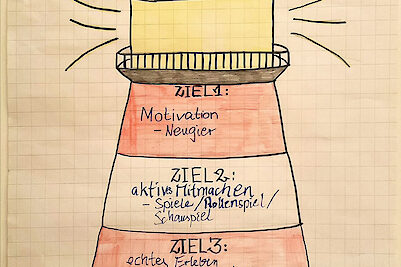 ZIEL1:
Motivation
- Neugier
ZIEL2:
aktives Mitmachen
- Spiele/Rollenspiel/
Schauspiel
ZIEL3:
echtes Erleben